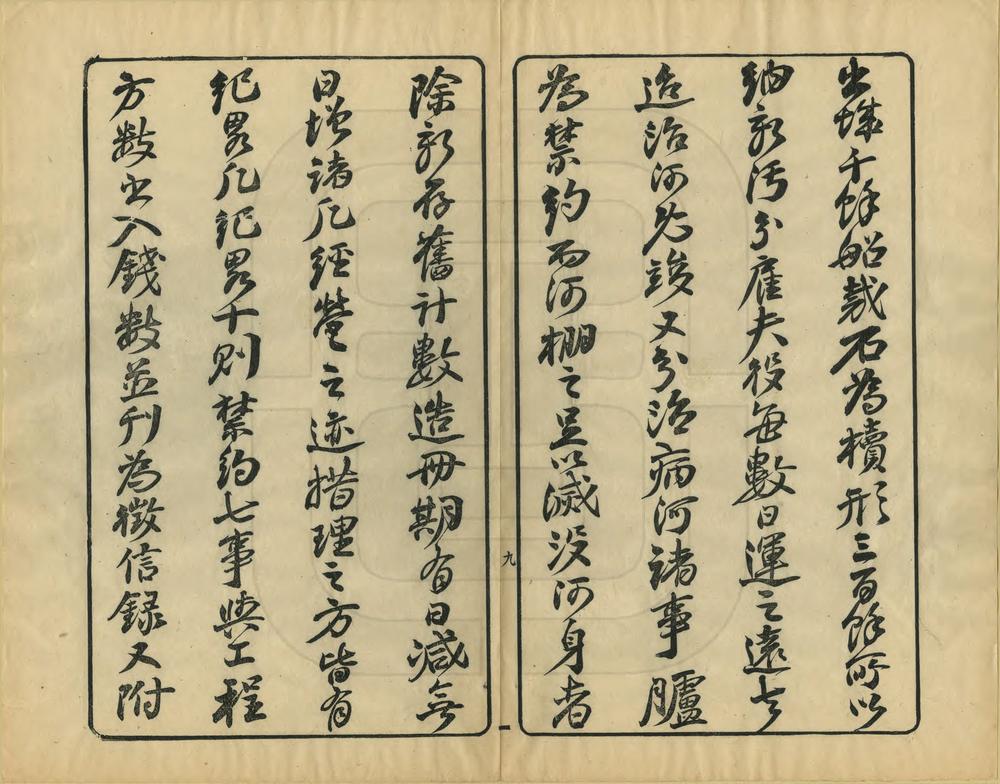 出㙮千餘船裁石為櫝形三百餘所以
納新污分雇夫役每數日運之遠去
造治河先竣又分治病河諸事臚
為禁約而河棚之足以滅没河身者
除新存舊計數造冊期有日減無
日增諸凡經營之迹措理之方皆有
紀畧凡紀畧十則禁約七事與工程
方數出入錢數並刊為徵信録又附
九